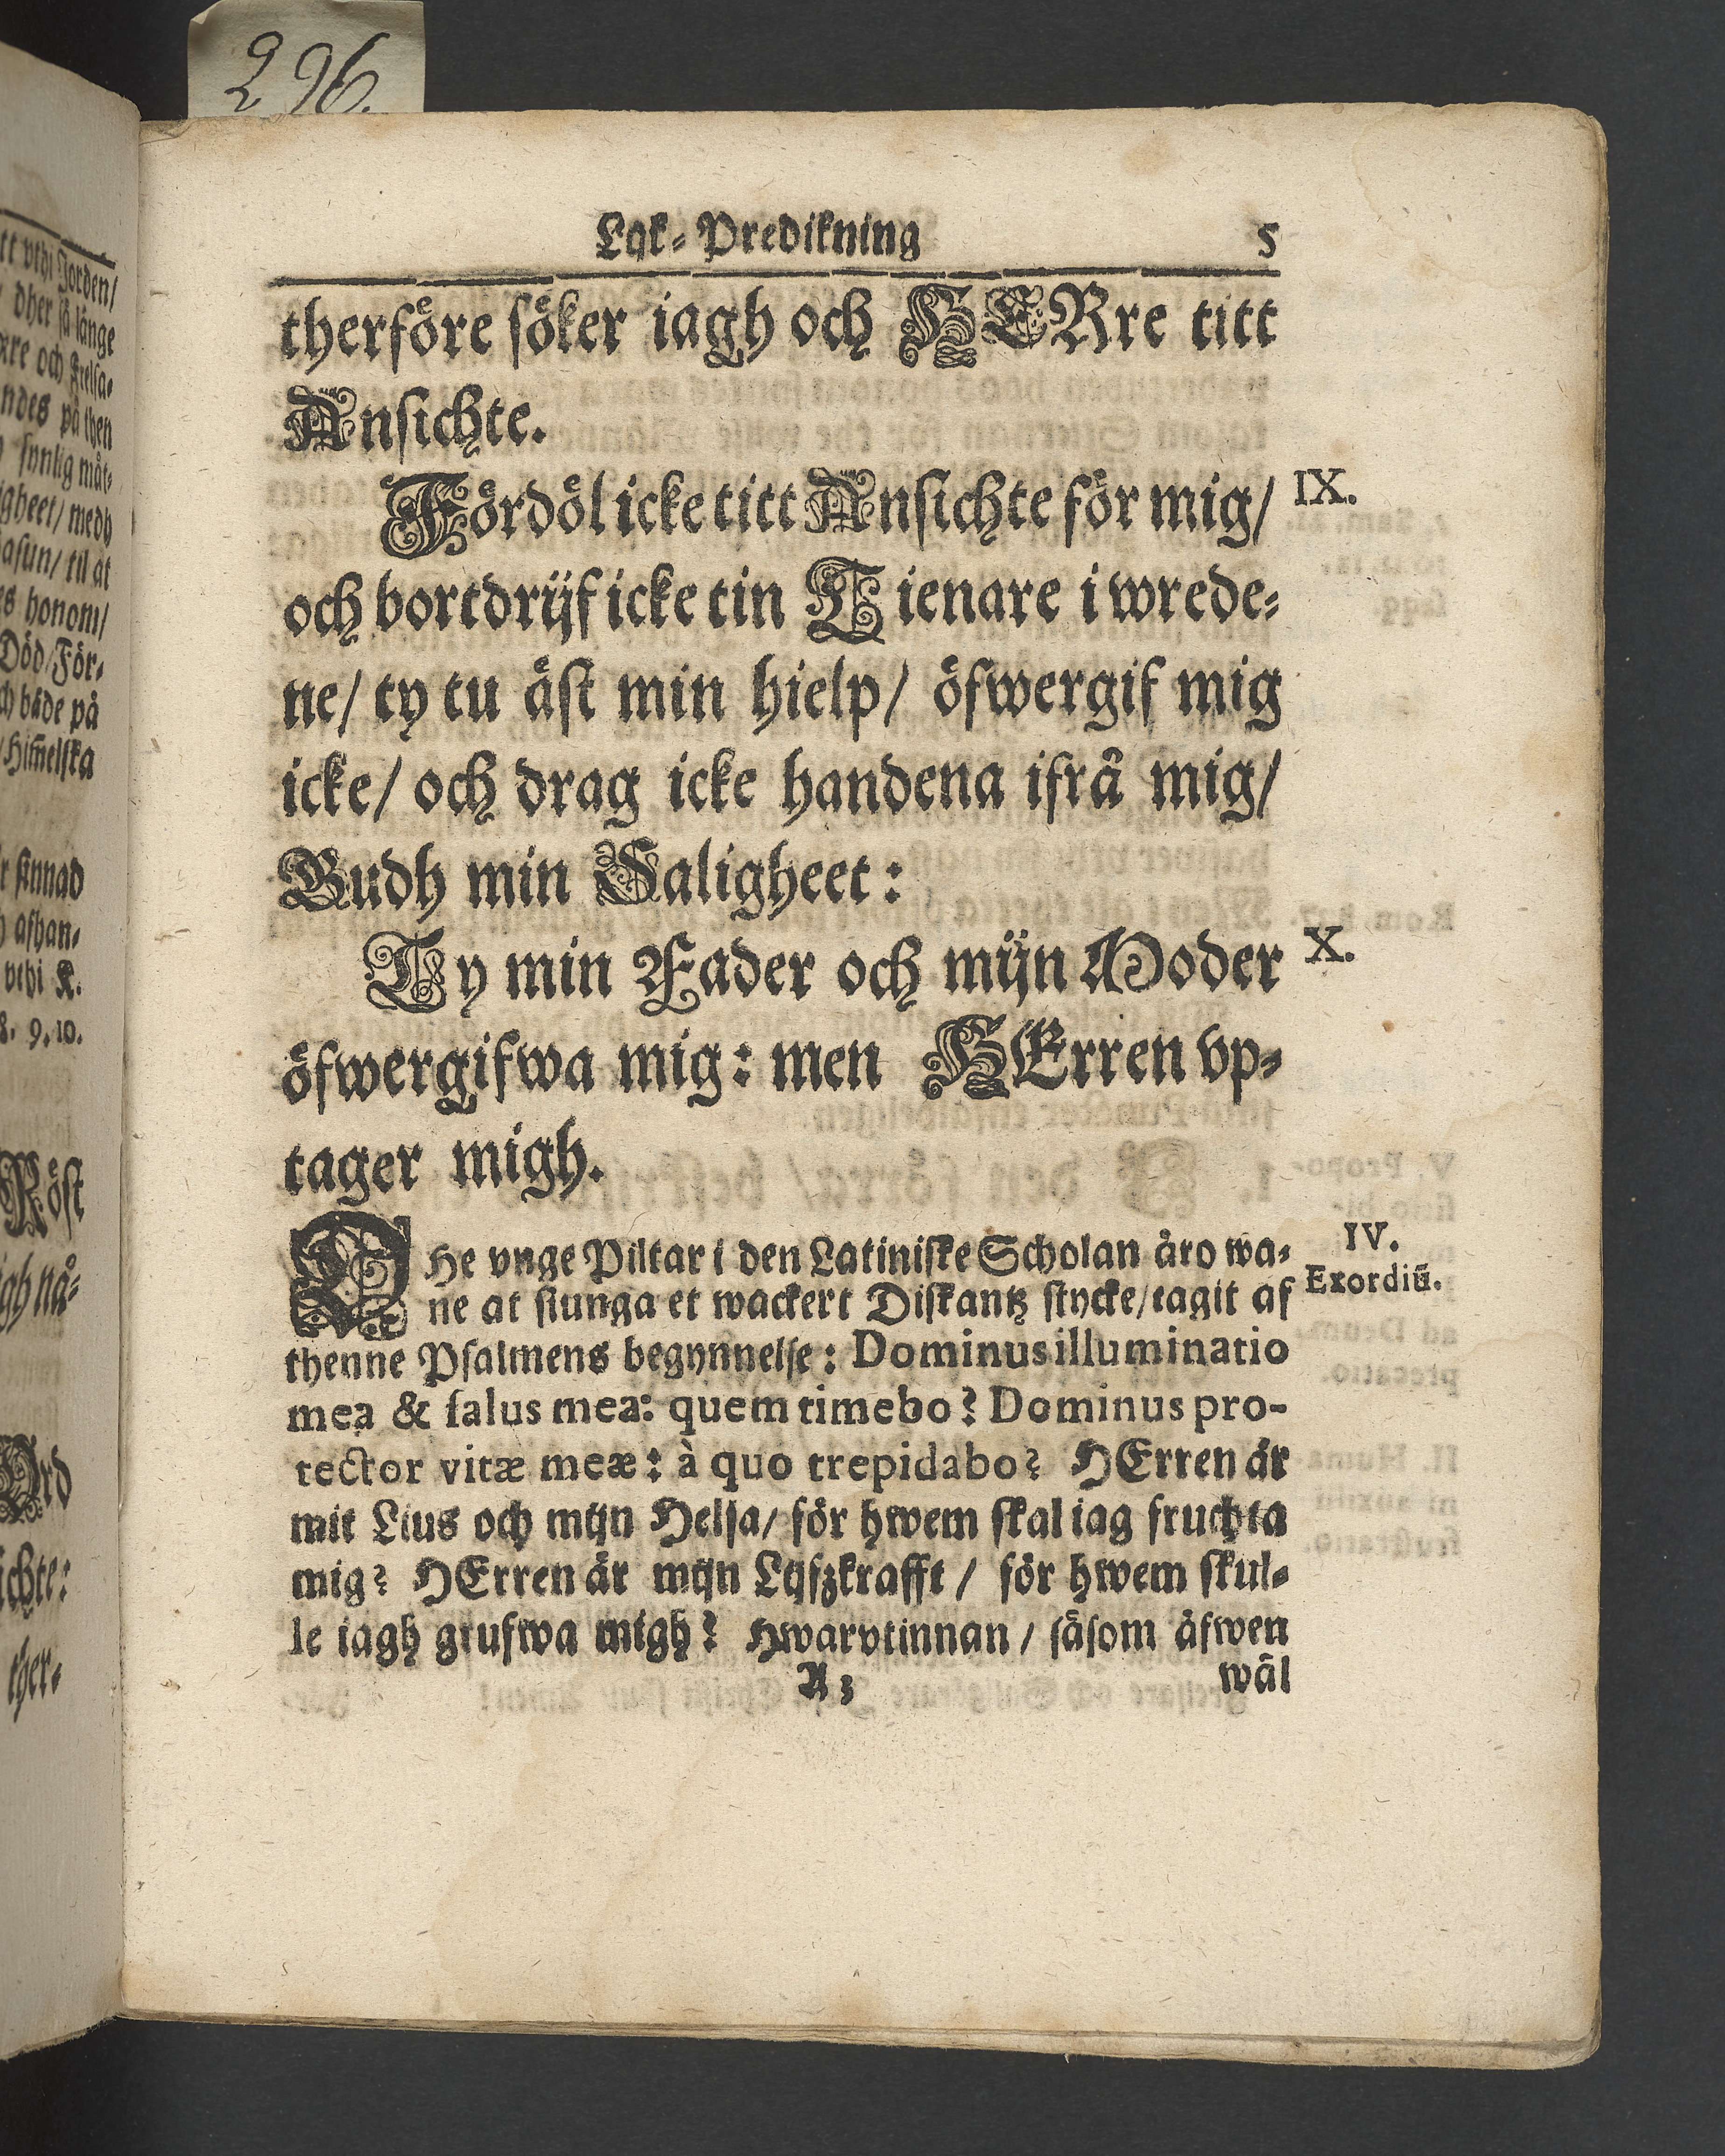 296.
tt vthi Jorden/
dher så länge
rre och Frelsa-
ndes på then
synlig måt-
gheet/ medh
asun/ til at
s honom/
Död/ För-
ch både på
/Him̃elska
sinnad
afhan-
vthi K.
8. 9. 10.
Röst
igh nå-
Ord
ichte:
ther-
Lijk-Predikning 5
therföre söker iagh och HERre titt
Ansichte.
Fördöl icke titt Ansichte för mig/ IX.
och bortdrijf icke tin Tienare i wrede-
ne/ ty tu äst min hielp/ öfwergif mig
icke/ och drag icke handena ifrå mig/
Gudh min Saligheet:
Ty min Fader och mijn Moder X.
öfwergifwa mig: men HErren vp-
tager migh.
THe vnge Piltar i den Latiniske Scholan äro wa- IV.
ne at siunga et wackert Diskantz stycke/ tagit af Exordiũ.
thenne Psalmens begynnelse: Dominus illuminatio
mea & salus mea: quem timebo? Dominus pro-
tector vitæ meæ: à quo trepidabo? HErren är
mit Lius och mijn Helsa/ för hwem skal iag fruchta
mig? HErren är mijn Lijfzkrafft / för hwem skul-
le iagh grufwa migh? Hwarvtinnan / såsom äfwen
A 3 wäl